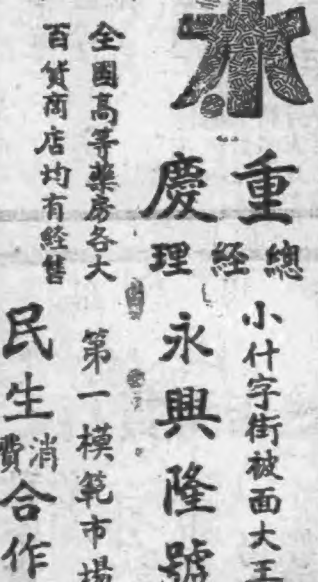 重慶
總經理
小什字街被面大王
永興隆號
全國高等藥房各大
百貨商店均有經售
第一模範市場
民生消費合作